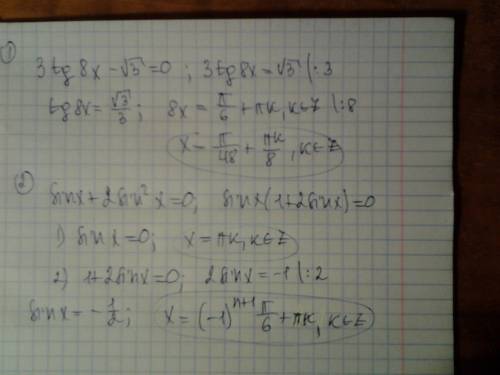 ①
3tg8x - √3 = 0 ; 3tg8x = √3 |:3
tg8x = √3/3 ; 8x = π/6 + πk, k∈Z |:8
x = π/48 + πk/8, k∈Z
②
sinx + 2sin²x = 0; sinx(1+2sinx)=0
1) sinx = 0; x = πk, k∈Z
2) 1+2sinx=0; 2sinx = -1 |:2
sinx = -1/2 ; x = (-1)ⁿ⁺¹ π/6 + πk, k∈Z